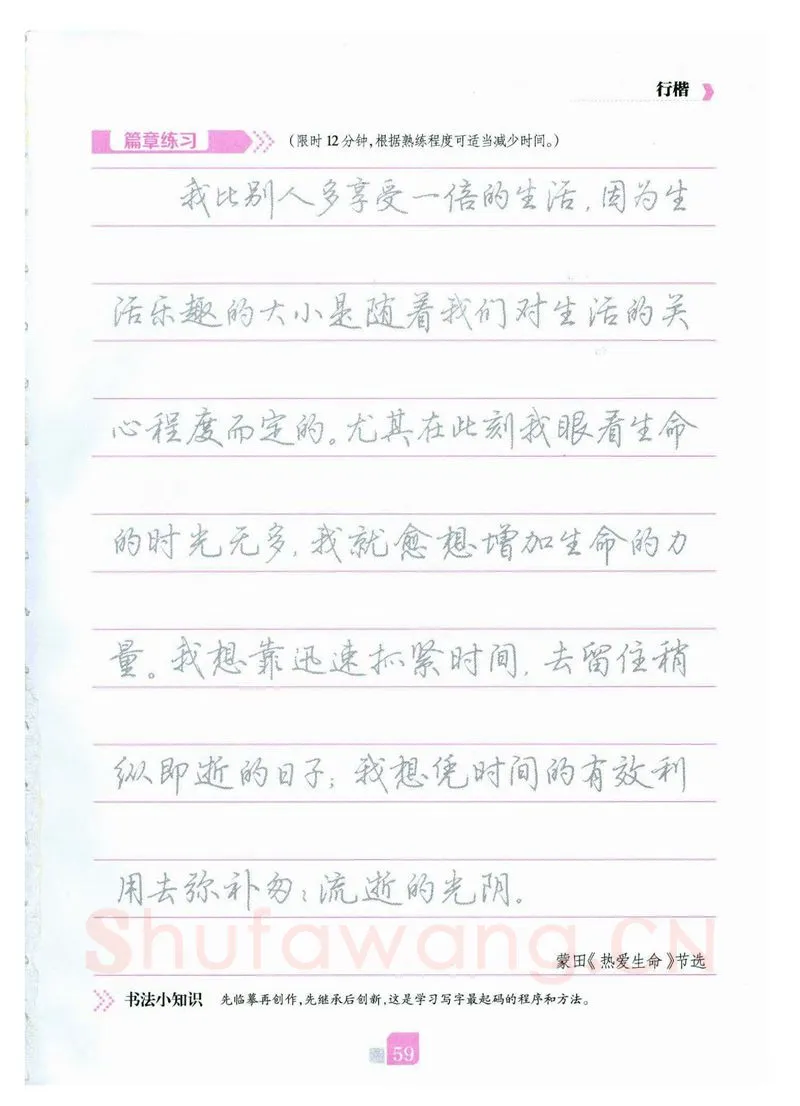 行楷
篇章练习 (限时12分钟,根据熟练程度可适当减少时间。)
我比别人多享受一倍的生活,因为生
活乐趣的大小是随着我们对生活的关
心程度而定的。尤其在此刻我眼看生命
的时光无多,我就愈想增加生命的力
量。我想靠迅速抓紧时间,去留住稍
纵即逝的日子;我想凭时间的有效利
用去弥补匆匆流逝的光阴。
Shufawang.CN
蒙田《热爱生命》节选
书法小知识 先临摹再创作,先继承后创新,这是学习写字最起码的程序和方法。
59